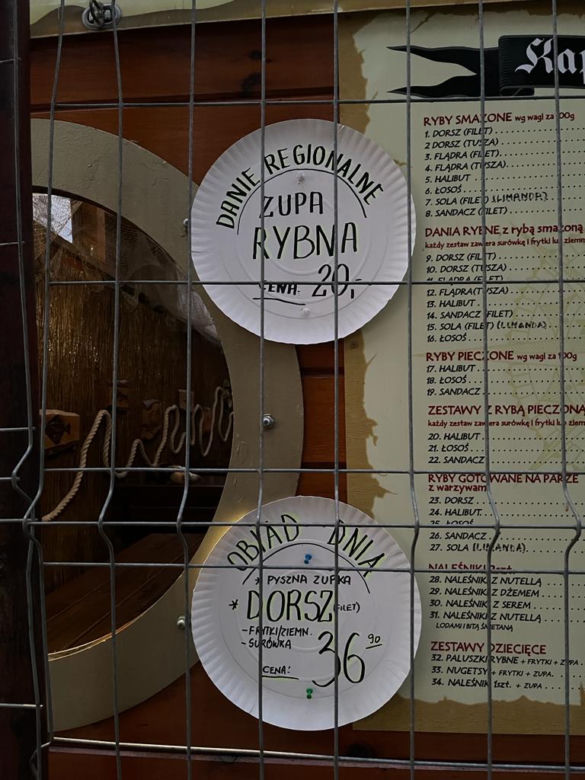 DANIE REGIONALNE
ZUPA
RYBNA
CENA: 20,-
OBIAD DNIA
* PYSZNA ZUPKA
* DORSZ (FILET)
- FRYTKI/ZIEMN.
- SURÓWKA
CENA: 36 90
RYBY SMAŻONE wg wagi za 100g
1. DORSZ (FILET)
2 DORSZ (TUSZA)
3. FLĄDRA (FILET)
4. FLĄDRA (TUSZA)
5. HALIBUT
6. ŁOSOŚ
7. SOLA (FILET) (LIMANDA)
8. SANDACZ (FILET)
DANIA RYBNE z rybą smażoną
każdy zestaw zawiera surówkę i frytki lub ziem
9. DORSZ (FILET)
10. DORSZ (TUSZA)
11. FLĄDRA (FILET)
12. FLĄDRA (TUSZA)
13. HALIBUT
14. SANDACZ (FILET)
15. SOLA (FILET) (LIMANDA)
16. ŁOSOŚ
RYBY PIECZONE wg wagi za 100g
17. HALIBUT
18. ŁOSOŚ
19. SANDACZ
ZESTAWY Z RYBĄ PIECZONĄ
każdy zestaw zawiera surówkę i frytki lub ziem
20. HALIBUT
21. ŁOSOŚ
22. SANDACZ
RYBY GOTOWANE NA PARZE
z warzywami
23. DORSZ
24. HALIBUT
25. ŁOSOŚ
26. SANDACZ
27. SOLA (LIMANDA)
NALEŚNIKI 2szt.
28. NALEŚNIKI Z NUTELLĄ
29. NALEŚNIKI Z DŻEMEM
30. NALEŚNIKI Z SEREM
31. NALEŚNIKI Z NUTELLĄ
LODAMI I BITĄ ŚMIETANĄ
ZESTAWY DZIECIĘCE
32. PALUSZKI RYBNE + FRYTKI + ZUPA
33. NUGETSY + FRYTKI + ZUPA
34. NALEŚNIK 1szt. + ZUPA